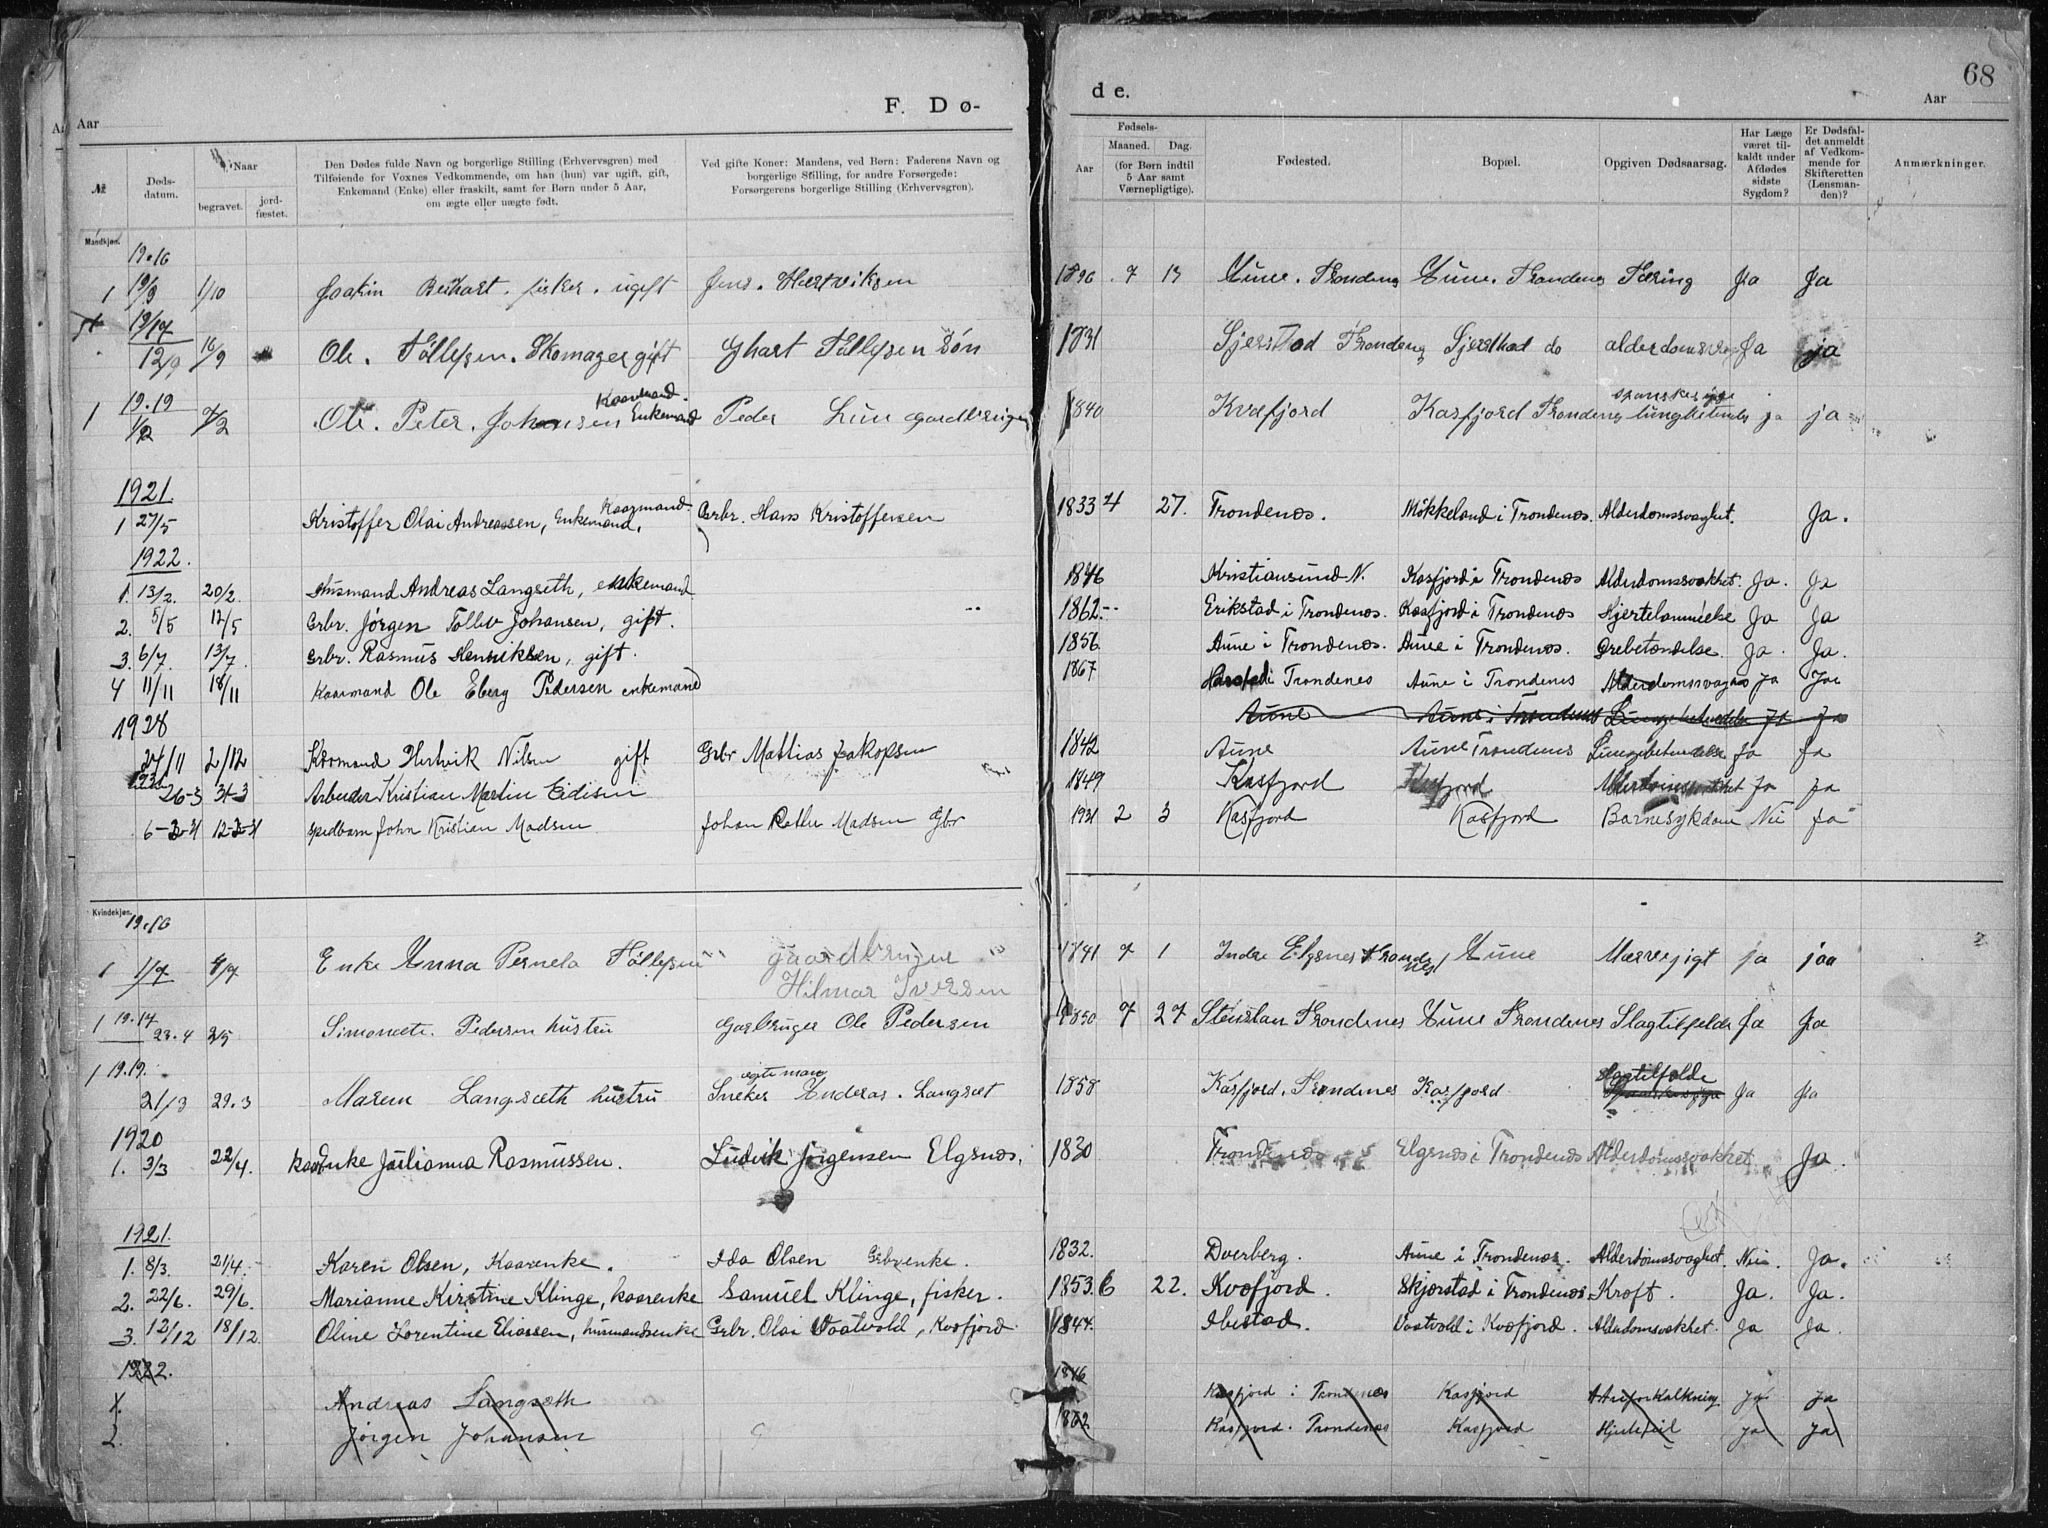 68
Aar
F. Dø-
de.
Aar
№
Døds-
datum.
Naar
begravet.
jord-
fæstet.
Den Dødes fulde Navn og borgerlige Stilling (Erhvervsgren) med
Tilføiende for Voxnes Vedkommende, om han (hun) var ugift, gift,
Enkemand (Enke) eller fraskilt, samt for Børn under 5 Aar,
om ægte eller uægte født.
Ved gifte Koner: Mandens, ved Børn: Faderens Navn og
borgerlige Stilling, for andre Forsørgede:
Forsørgerens borgerlige Stilling (Erhvervsgren).
Aar
Fødsels-
Maaned. Dag.
(for Børn indtil
5 Aar samt
Værnepligtige).
Fødested.
Bopæl.
Opgiven Dødsaarsag.
Har Læge
været til-
kaldt under
Afdødes
sidste
Sygdom?
Er Dødsfal-
det anmeldt
af Vedkom-
mende for
Skifteretten
(Lensman-
den)?
Anmærkninger.
Mandkjøn.
19.16
1 19/9 1/10 Joakin fisker. ugift Jens. Hertviksen 1896 7 13 Aune. Trondenes Aune. Trondenes Tæring Ja Ja
19/17
12/9 16/9 Ole. Tøllefsen. Skomager gift Tøllefsen Søn 1831 Trondenes do alderdoms Ja ja
19.19
1 1/2 7/2 Ole. Peter. Johansen Kaarmand. Enkemand Peder gardbruger 1840 Kvæfjord Kasfjord Trondenes spanske syge lungebetændelse ja ja
1921.
1 27/5 Kristoffer Olai Andreassen, Enkemand, Kaarmand. Grbr. Hans Kristoffersen 1833 4 27. Trondenæs. Møkkeland i Trondenæs. Alderdomssvaghet. Ja.
1922.
1. 13/2. 20/2. Husmand Andreas Langseth, enkemand 1846 Kristiansund N. Kasfjord i Trondenæs Alderdomssvakhet. Ja. Ja
2. 5/5 12/5 Grbr. Jørgen Tollev Johansen, gift. 1862. Erikstad i Trondenæs. Kasfjord i Trondenæs Hjertelammelse Ja Ja
3. 6/7. 13/7. Grbr. Rasmus Henriksen, gift. 1856. Aune i Trondenæs. Aune i Trondenæs. Ørebetændelse. Ja. Ja.
4 11/11 18/11 Kaarmand Ole Eberg Pedersen enkemand 1867 Harstad i Trondenes Aune i Trondenes Alderdomssvaghet ja Ja
1928 Aune Aune i Trondenes Lungebetændelse ja ja
24/11 2/12 Kårmand Hertvik Nilsen gift Grbr Mattias Jakopsen 1842 Aune Aune Trondenes Lungebetendelse Ja Ja
26-3 31-3 Arbeider Kristian Martin Eidisen 1849 Kasfjord Kasfjord Alderdomssvakhet Ja ja
6-3-31 12-3-31 spedbarn John Kristian Madsen Johan Madsen Gbr 1931 2 3 Kasfjord Kasfjord Barnesykdom Nei Ja
Kvindekjøn.
19.16
1 1/7 8/7 Enke Anna Pernela Tøllefsen gaardbruger 1841 7 1 Indre Elgsnes Trondenes Aune ja jaa
Hilmar Iversen
1 19.17
23.4 2/5 Simonete. Pedersen hustru Garbruger Ole Pedersen 1850 7 27 Trondenes Aune Trondenes Slagtilfelde Ja Ja
1 19.19.
21/3 29.3 Maren Langsæth hustru egteman Sneker Anderas. Langset 1858 Kasfjord. Trondenes Kasfjord Slagtilfælde Spanskesyge Ja Ja
1920
1. 3/3 22/4. Kaarenke Julianna Rasmussen. Ludvik Jørgensen Elgsnæs. 1830 Trondenæs Elgsnæs i Trondenæs Alderdomssvakhet Ja.
1921.
1. 8/3. 21/4. Karen Olsen, Kaarenke. Ida Olsen Grbrenke. 1832. Dverberg. Aune i Trondenæs. Alderdomssvaghet. Nei. Ja.
2. 22/6. 29/6. Marianne Kirstine Klinge, kaarenke Samuel Klinge, fisker. 1853. 6 22. Kvæfjord. Skjærstad i Trondenæs. Kræft. Ja. Ja.
3. 12/12 18/12. Oline Lorentine Eliassen, husmandsenke Grbr. Olai Vaatvold, Kvæfjord. 1847. Ibestad. Vaatvold i Kvæfjord. Alderdomsvakhet. Ja Ja.
1922.
1. Andreas Langseth 1846 Kasfjord i Trondenæs Kasfjord Aareforkalkning. Ja Ja
2. Jørgen Johansen 1862 Kasfjord. Trondenæs Kasfjord Hjertefeil Ja Ja